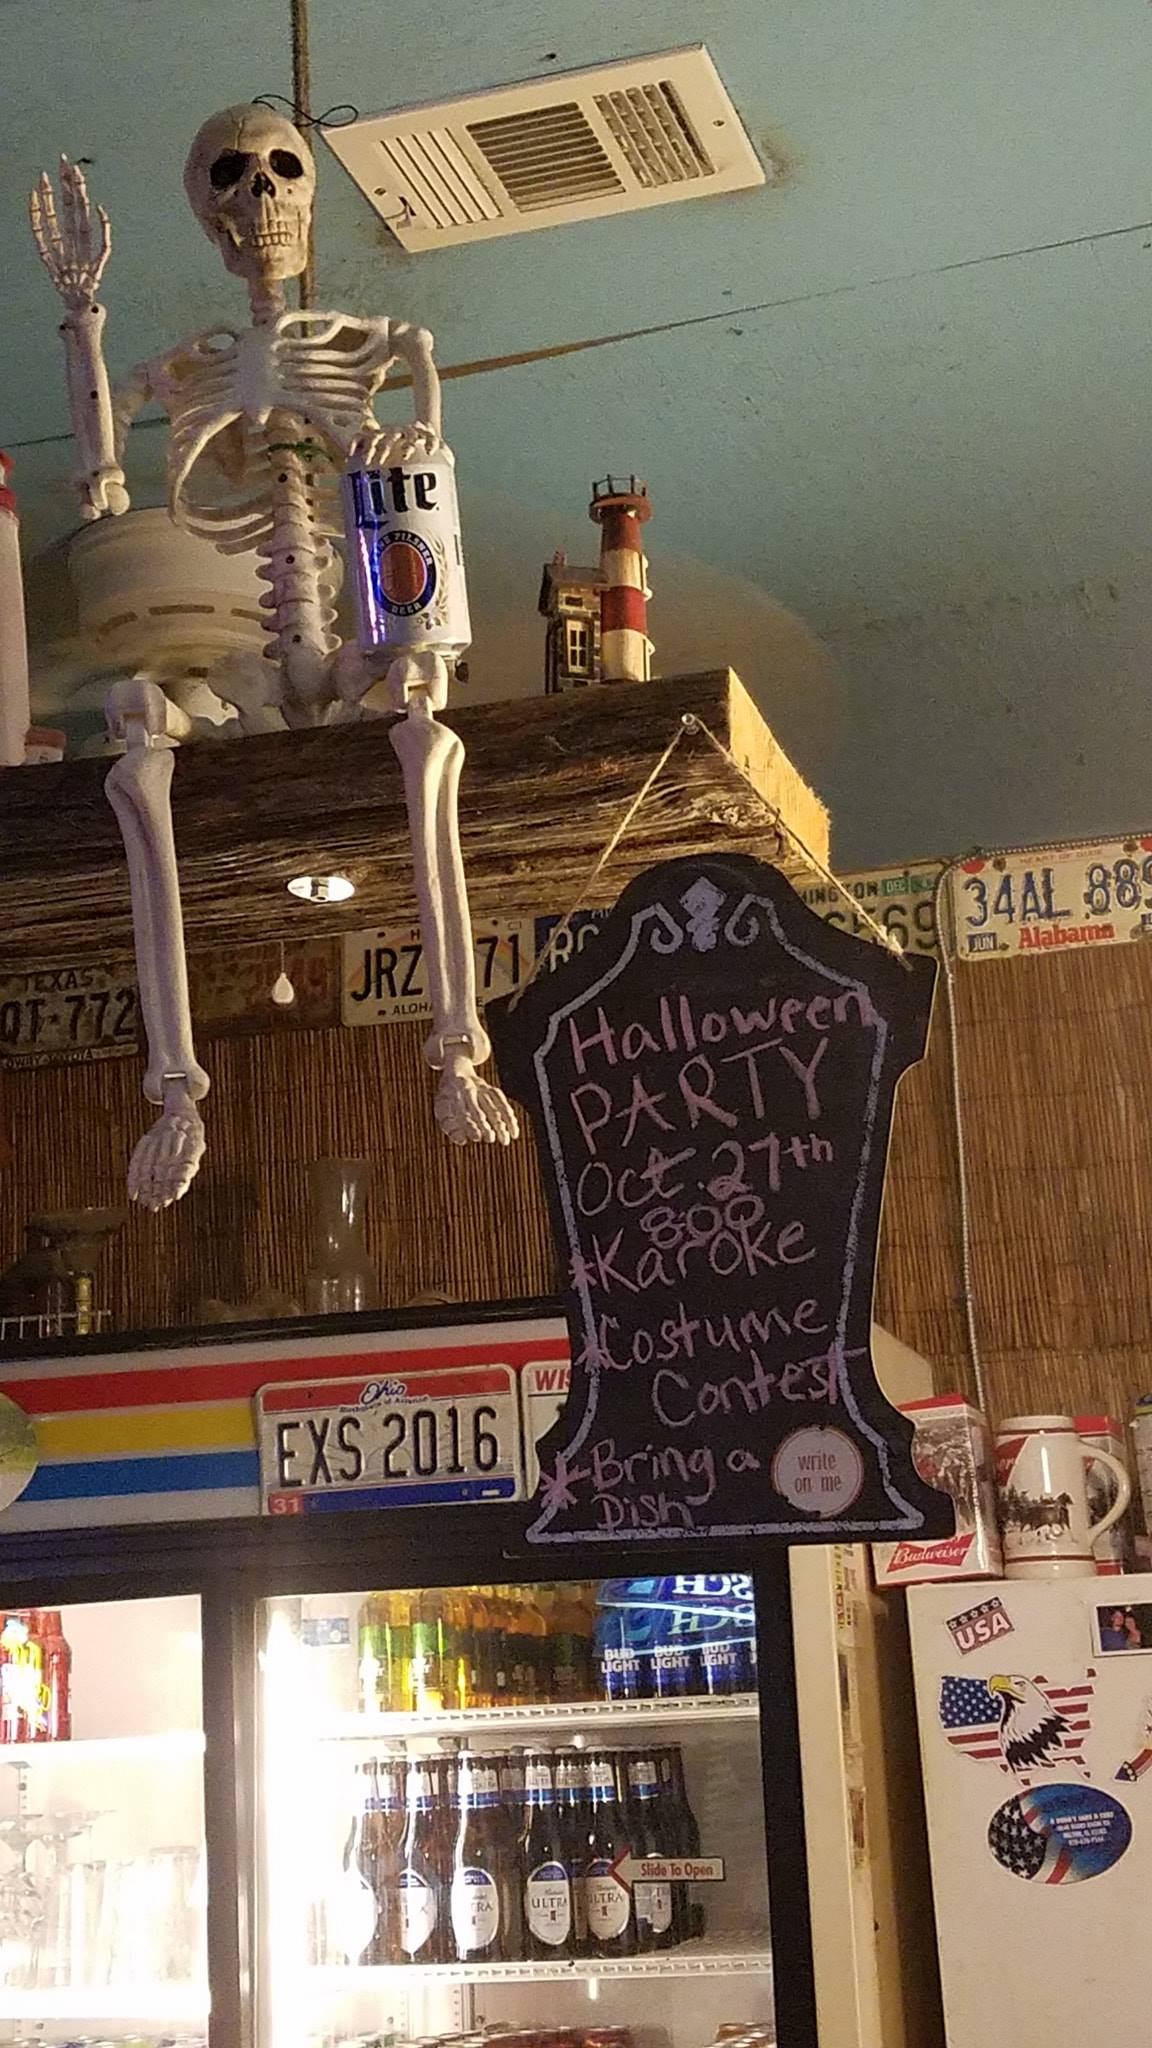 Lite
FINE PILSNER
BEER
TEXAS
QT-772
JRZ 71
ALOHA
DEC
569
HEART OF DIXIE
34AL 889
JUN
Alabama
Halloween
PARTY
Oct. 27th
800
*Karoke
*Costume
Contest
*Bring a
Dish
write
on me
Ohio
EXS 2016
31
WIS
Budweiser
USA
BUD
LIGHT
BUD
LIGHT
BUD
LIGHT
ULTRA
ULTRA
Slide To Open